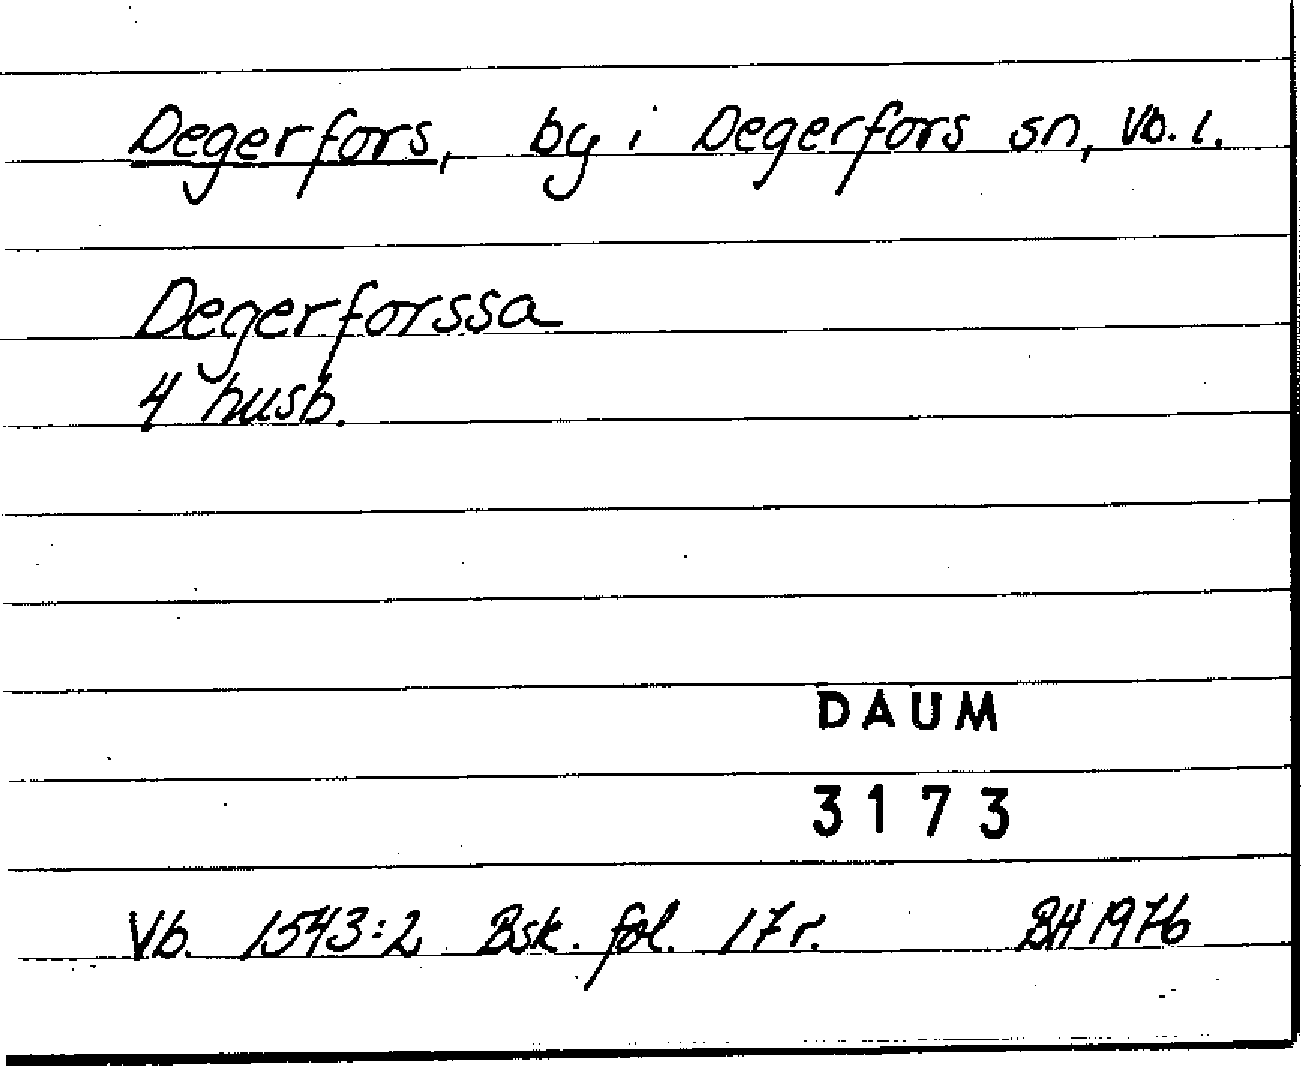 Degerfors, by i Degerfors sn, Vb. l.
Degerforssa
4 husb.
DAUM
3173
Vb. 1543:2 Bsk. fol. 17r. BH 1976